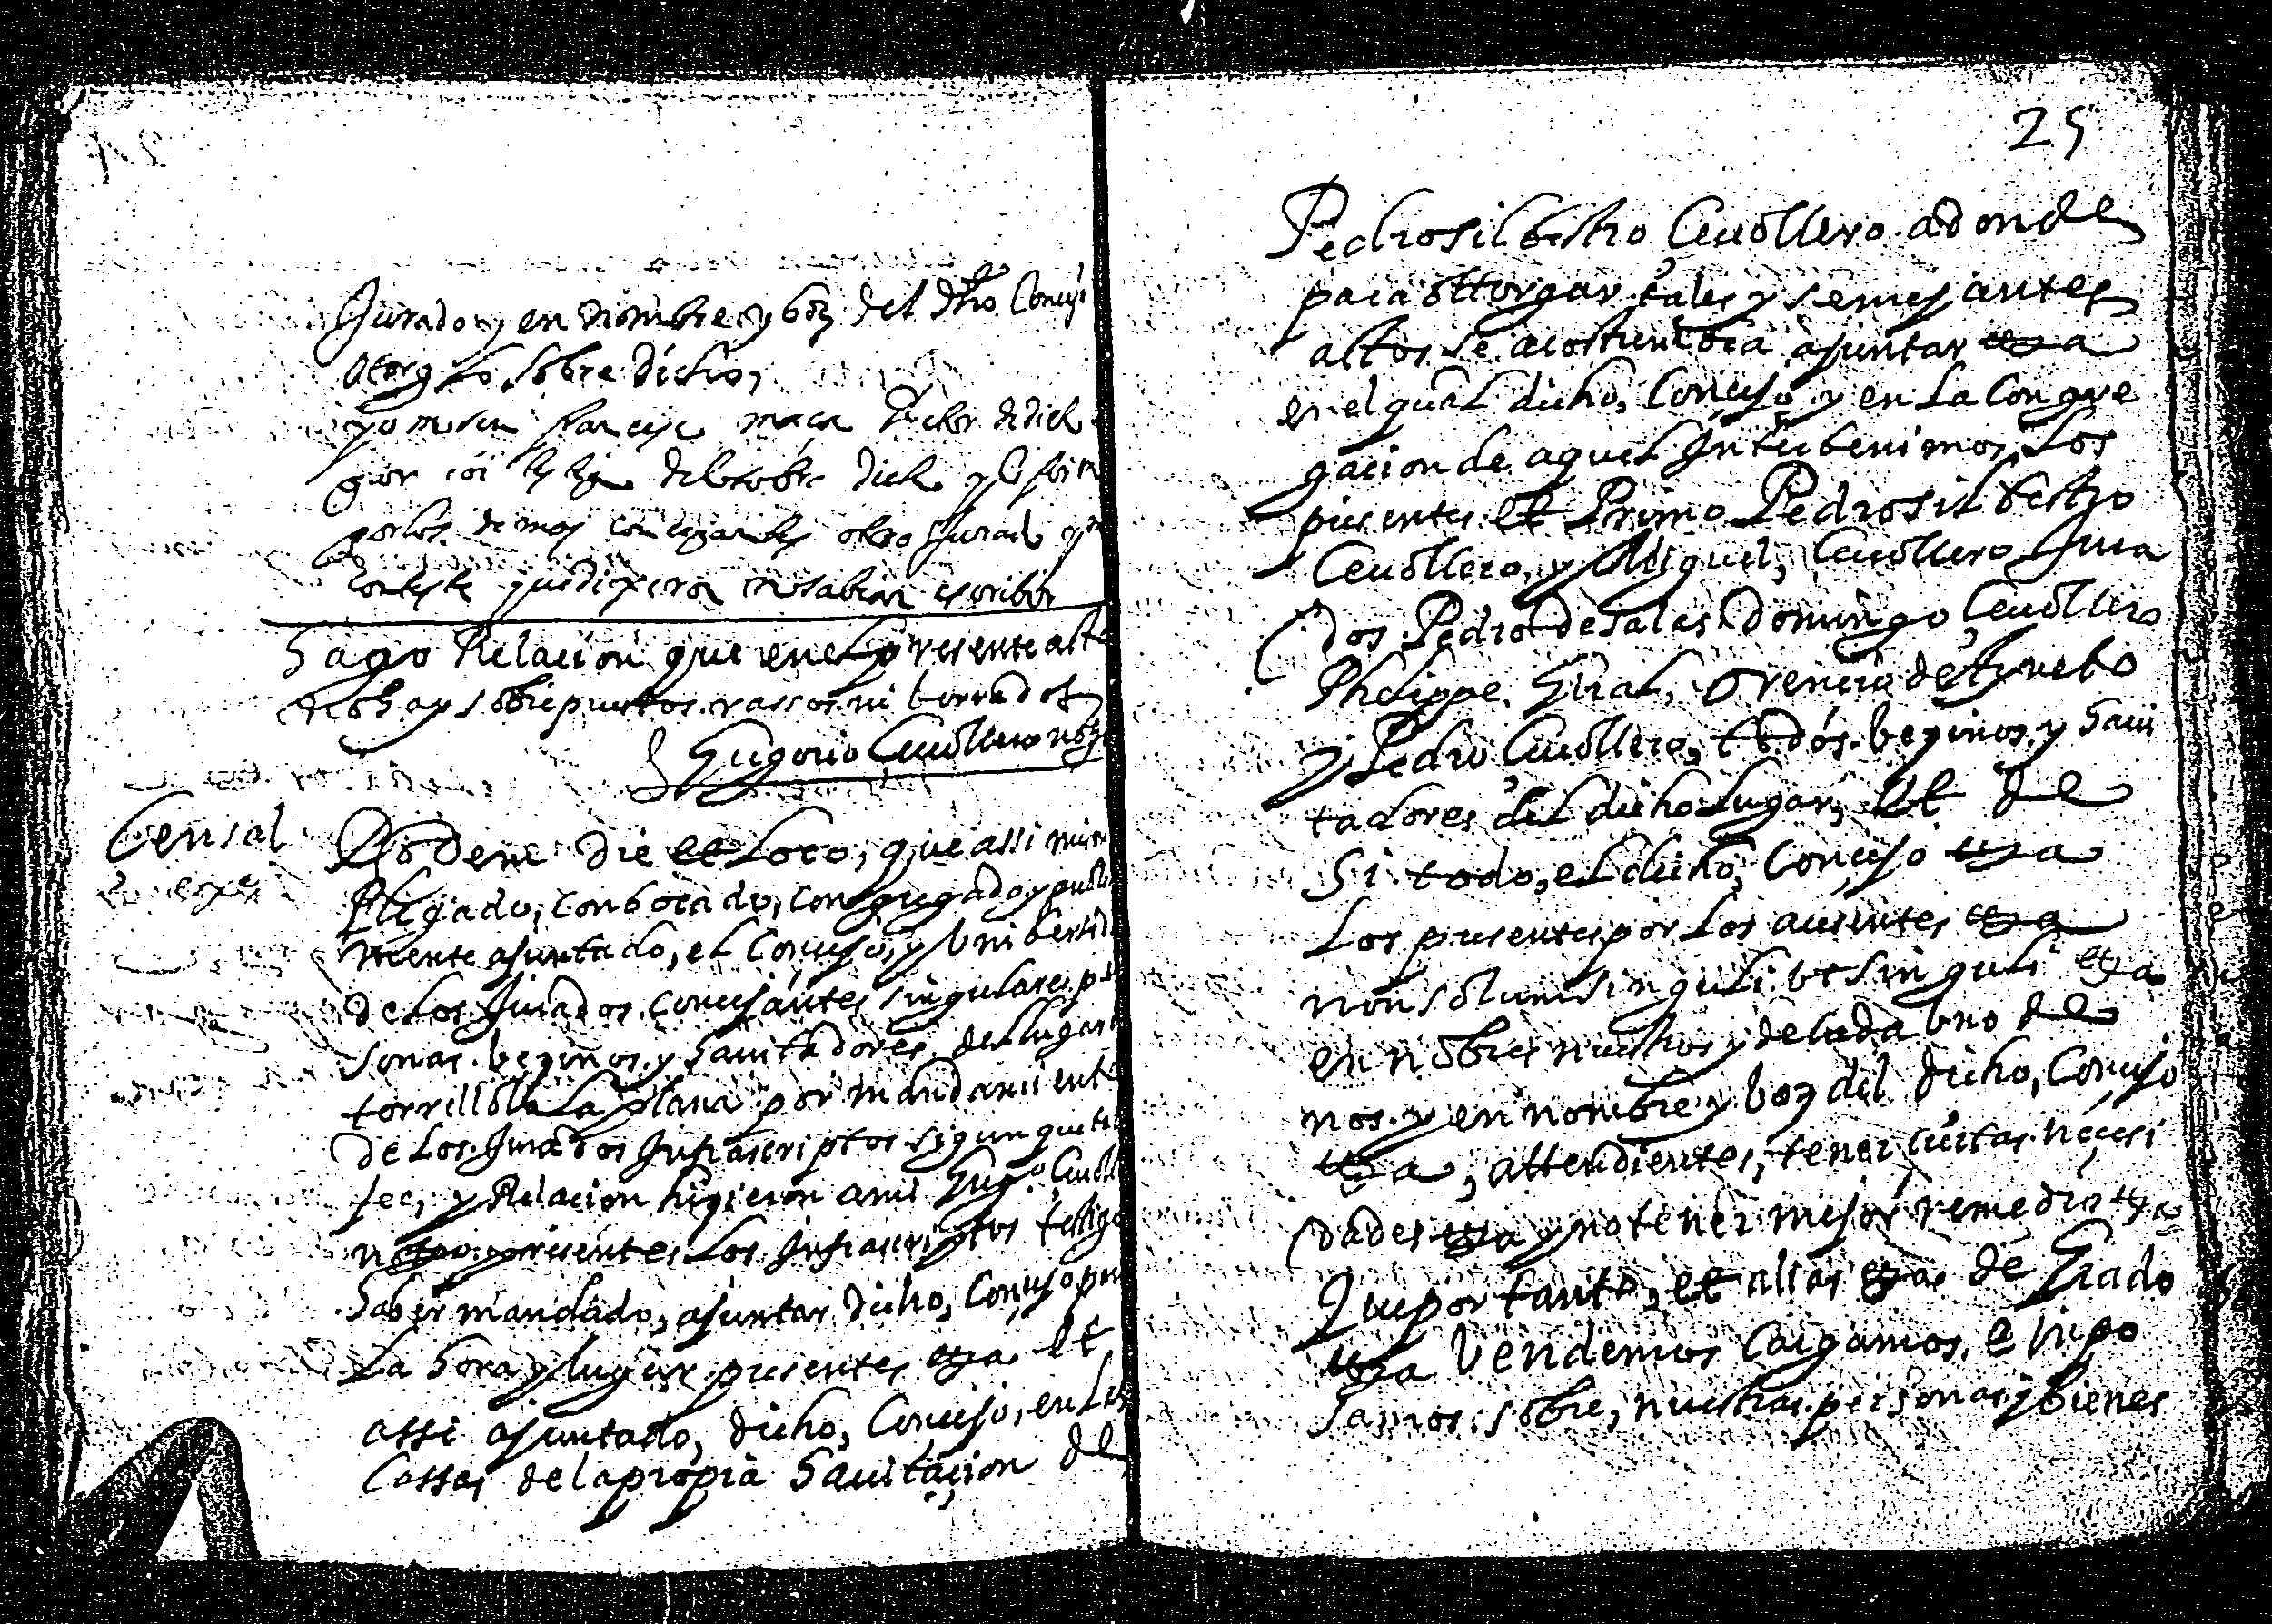 Jurados, en nombre y boz del dho Concejo
otorgo lo sobre dicho,
yo mosen
soy testigo del sobre dicho y lo firmo
por los demas concejantes otro Jurado y
conteste que dixeron no saber escribir
Hago Relacion que en el presente acto
no hay sobrepuestos rassos ni borrados
Gregorio Cevollero not
Censal
Eodem die et Loco, que assi mismo
Plegado, conbocado, congregado y publica
mente ajuntado, el Concejo, y Unibersidad
de Los Jurados. concejantes singulares per
sonas. bezinos. y havitadores. del lugar de
torrillola La plana por mandamiento
de Los. Jurados Infrascriptos segun que tal
fee, y Relacion hizieron a mi Greg.o Cevoll
not presentes Los Infrascriptos testigos
haber mandado, ajuntar dicho, Concejo para
La hora y lugar presentes etza et
assi ajuntado, dicho, Concejo, en Las
Cassas de la propia havitaçion de
25
Pedro silbestro Cevollero adonde
para ottorgar tales y semejantes
actos se acostumbra ajuntar etza
en el qual dicho, Concejo y en La Congre
gacion de aquel Interbenimos Los
presentes et Primo Pedro silbestro
Cevollero, y Miguel, Cevollero Jura
dos Pedro de salas Domingo Cevollero
Phelippe Gral, Orencio de
y Pedro Cevollero, todos. bezinos. y havi
tadores del dicho Lugar, Et de
si todo, el dicho, Concejo etza
Los presentes por Los ausentes etza
non solum singuli. ut singuli etza
en nōbres nuestros y de cada uno de
nos. y en nombre y boz del dicho, Concejo
etza, attendientes, tener ciertas. neçesi
dades etza y no tener mejor remedio etza
Que por tanto, et alias etza de Grado
etza Vendemos Cargamos, e inpo
samos. sobre, nuestras. personas y bienes